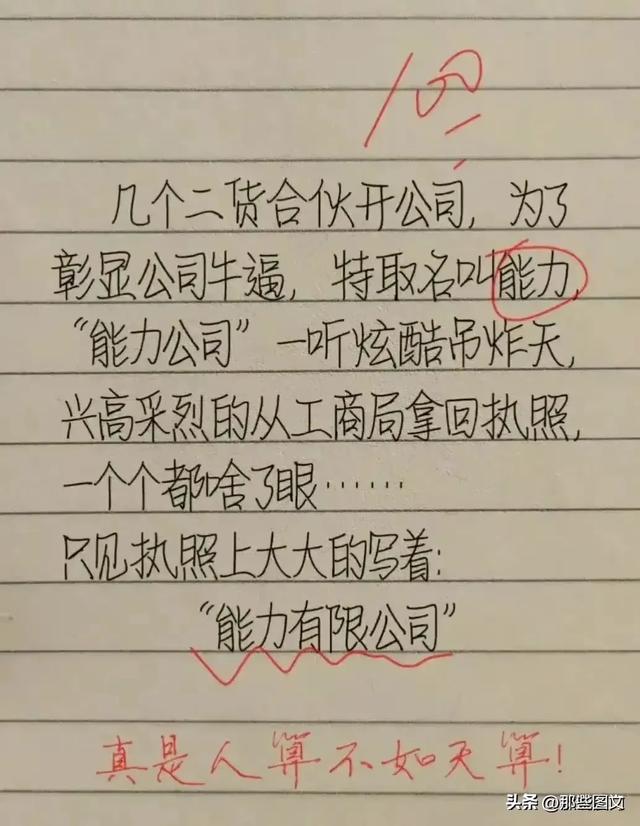 100
几个二货合伙开公司，为了
彰显公司牛逼，特取名叫能力，
“能力公司”一听炫酷吊炸天，
兴高采烈的从工商局拿回执照，
一个个都啥了眼……
只见执照上大大的写着：
“能力有限公司”
真是人算不如天算！
头条 @那些图文